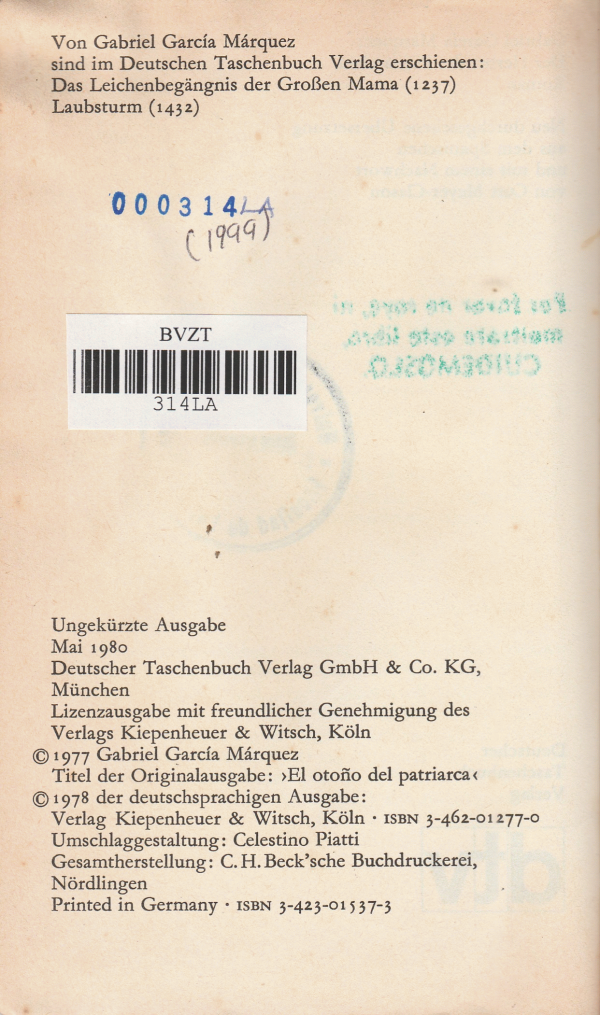 Von Gabriel García Márquez
sind im Deutschen Taschenbuch Verlag erschienen:
Das Leichenbegängnis der Großen Mama (1237)
Laubsturm (1432)
000314LA
(1999)
Por favor no raye, ni
maltrate este libro.
CUIDEMOSLO.
BVZT
314LA
Ungekürzte Ausgabe
Mai 1980
Deutscher Taschenbuch Verlag GmbH & Co. KG,
München
Lizenzausgabe mit freundlicher Genehmigung des
Verlags Kiepenheuer & Witsch, Köln
© 1977 Gabriel García Márquez
Titel der Originalausgabe: ›El otoño del patriarca‹
© 1978 der deutschsprachigen Ausgabe:
Verlag Kiepenheuer & Witsch, Köln · ISBN 3-462-01277-0
Umschlaggestaltung: Celestino Piatti
Gesamtherstellung: C. H. Beck'sche Buchdruckerei,
Nördlingen
Printed in Germany · ISBN 3-423-01537-3
dtv